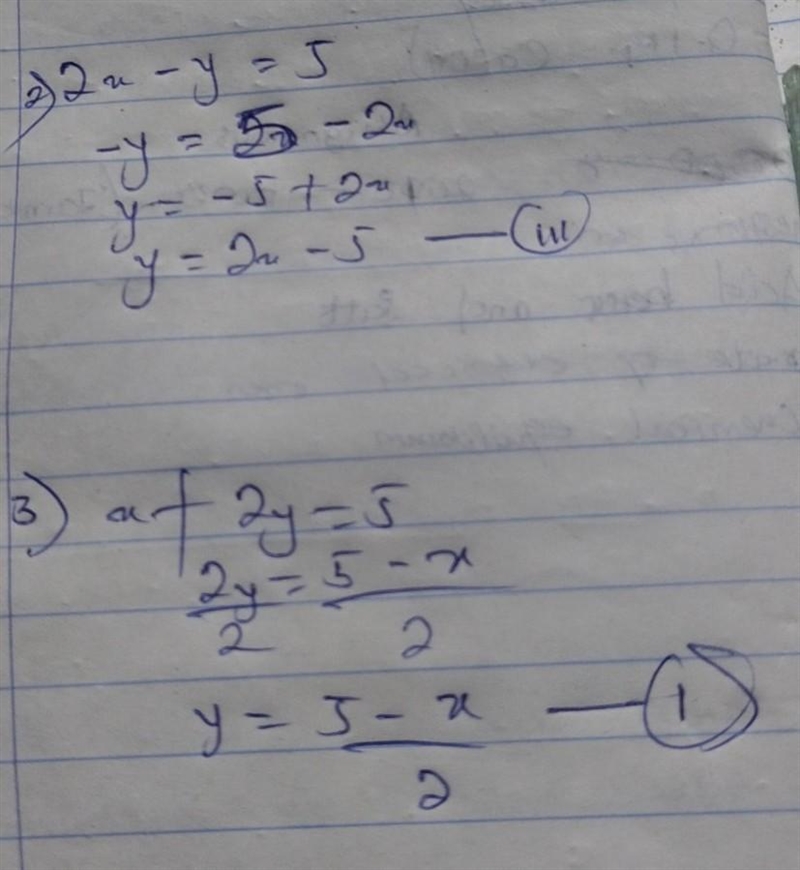 2) 2x - y = 5
-y = 5 - 2x
y = -5 + 2x
y = 2x - 5 — (iii)
3) x + 2y = 5
2y/2 = (5 - x)/2
y = (5 - x)/2 — (1)